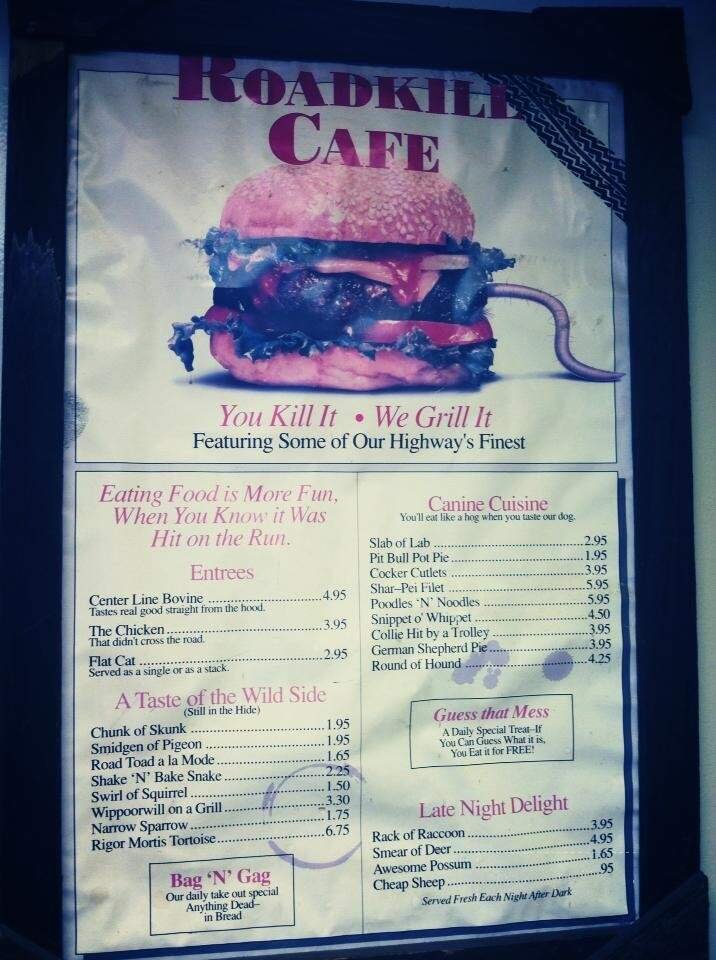 ROADKILL
CAFE
You Kill It • We Grill It
Featuring Some of Our Highway's Finest
Eating Food is More Fun,
When You Know it Was
Hit on the Run.
Entrees
Center Line Bovine ........ 4.95
Tastes real good straight from the hood.
The Chicken ........ 3.95
That didn't cross the road.
Flat Cat ........ 2.95
Served as a single or as a stack.
A Taste of the Wild Side
(Still in the Hide)
Chunk of Skunk ........ 1.95
Smidgen of Pigeon ........ 1.95
Road Toad a la Mode ........ 1.65
Shake 'N' Bake Snake ........ 2.25
Swirl of Squirrel ........ 1.50
Wippoorwill on a Grill ........ 3.30
Narrow Sparrow ........ 1.75
Rigor Mortis Tortoise ........ 6.75
Bag 'N' Gag
Our daily take out special
Anything Dead–
in Bread
Canine Cuisine
You'll eat like a hog when you taste our dog.
Slab of Lab ........ 2.95
Pit Bull Pot Pie ........ 1.95
Cocker Cutlets ........ 3.95
Shar–Pei Filet ........ 5.95
Poodles 'N' Noodles ........ 5.95
Snippet o' Whippet ........ 4.50
Collie Hit by a Trolley ........ 3.95
German Shepherd Pie ........ 3.95
Round of Hound ........ 4.25
Guess that Mess
A Daily Special Treat–If
You Can Guess What it is,
You Eat it for FREE!
Late Night Delight
Rack of Raccoon ........ 3.95
Smear of Deer ........ 4.95
Awesome Possum ........ 1.65
Cheap Sheep ........ .95
Served Fresh Each Night After Dark